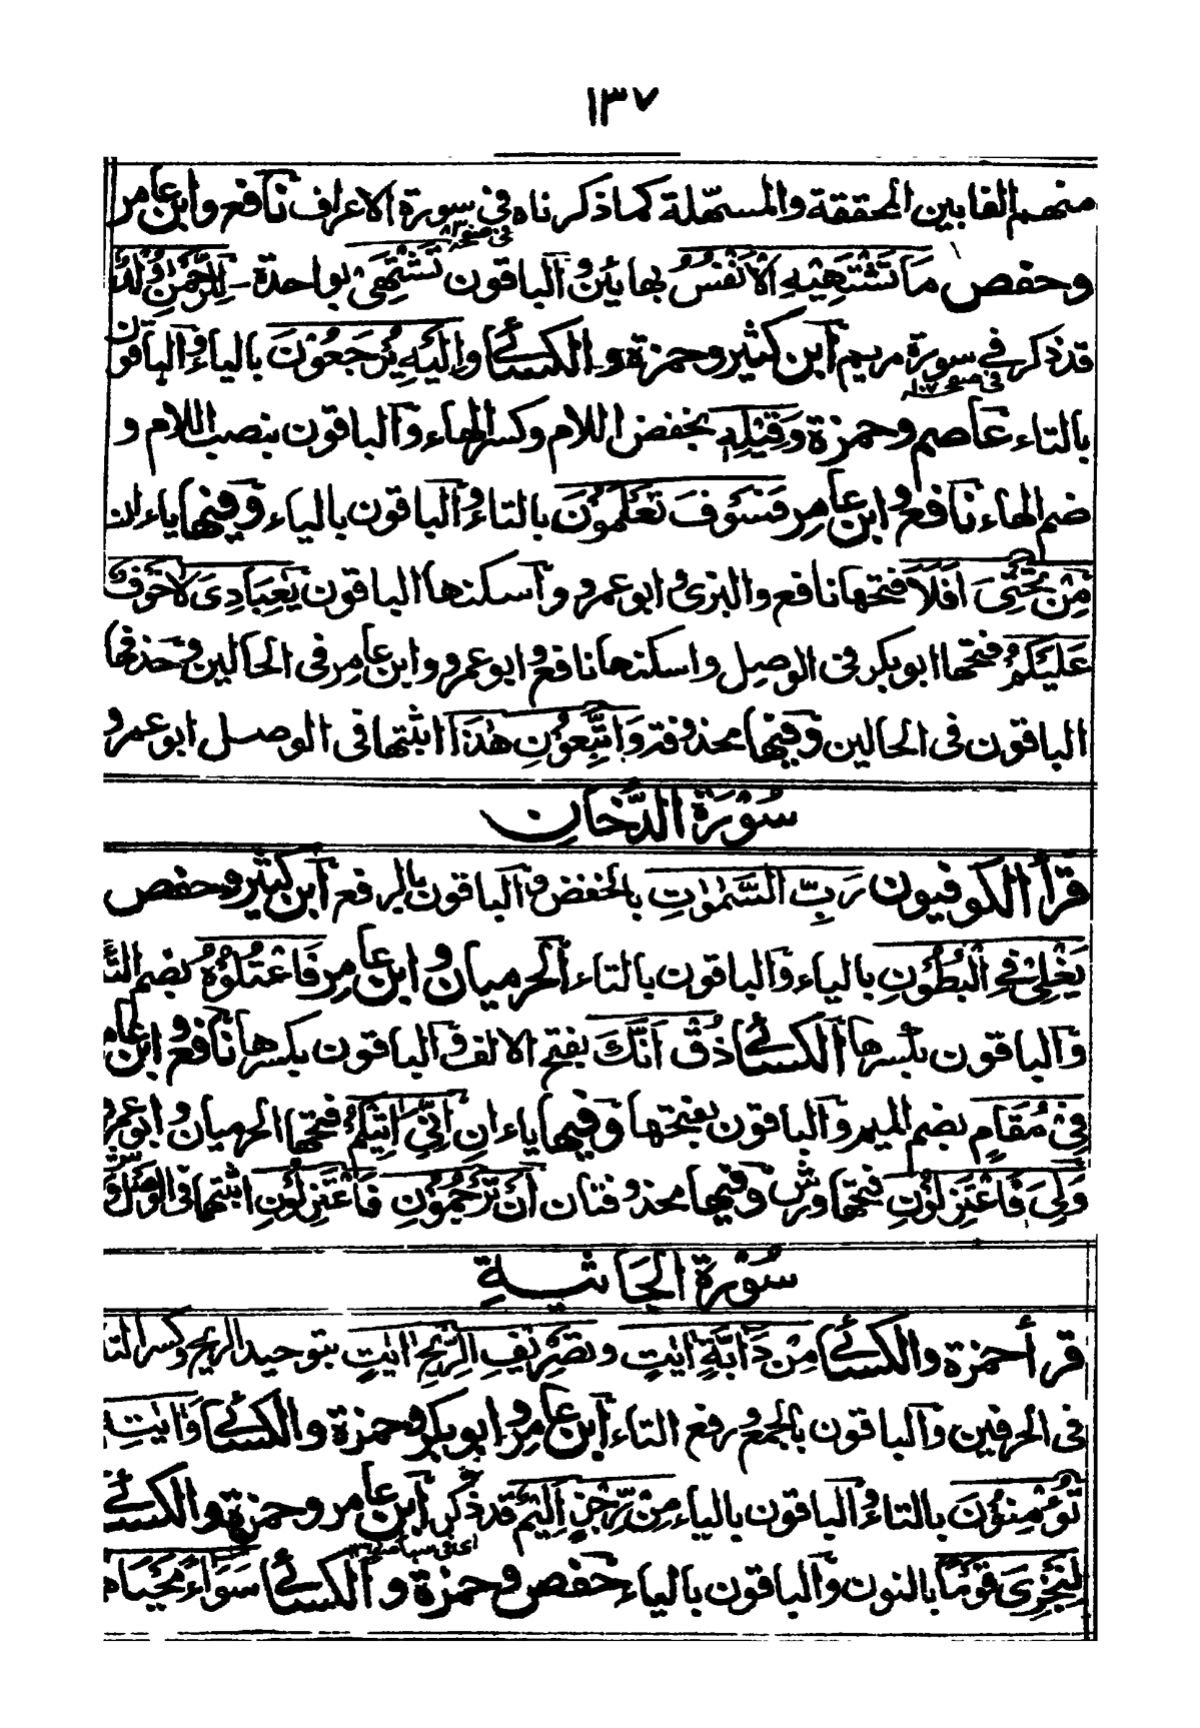 ١٣٧
منهم الفا بين المحققة والمسهّلة كما ذكرناه فى سورة الاعراف نافع وابن عامر
فى صفحه
وحفص مَا تَشْتَهِيْهِ الْاَنْفُسُ بهايئن والباقون تَشْتَهِىْ بواحدة لِلرَّحْمٰنِ وُلْدٌ
قد ذكر فى سورة مريم ابن كثير وحمزة والكسائى وَاِلَيْهِ يُرْجَعُوْنَ بالياء والباقون
فى صفحه ١٠٧
بالتاء عاصم وحمزة وَقِيْلِهٖ بخفض اللام وكسر الهاء والباقون بنصب اللام و
ضم الهاء نافع وابن عامر فَسَوْفَ تَعْلَمُوْنَ بالتاء والباقون بالياء وفيها ياءان
مِنْ تَحْتِىْ اَفَلَا فتحها نافع والبزى وابو عمرو واسكنها الباقون يٰعِبَادِىَ لَا خَوْفٌ
عَلَيْكُمُ فتحها ابوبكر فى الوصل واسكنها نافع وابو عمرو وابن عامر فى الحالين وحذفها
الباقون فى الحالين وفيها محذوفة وَاتَّبِعُوْنِ هٰذَا اثبتها فى الوصل ابو عمرو
سُوْرَةُ الدُّخَانِ
قرأ الكوفيون رَبِّ السَّمٰوٰتِ بالخفض والباقون بالرفع ابن كثير وحفص
يَغْلِىْ فِى الْبُطُوْنِ بالياء والباقون بالتاء الحرميان وابن عامر فَاعْتُلُوْهُ بضم التاء
والباقون بكسرها الكسائى ذُقْ اَنَّكَ بفتح الالف والباقون بكسرها نافع وابن عامر
فِىْ مُقَامٍ بضم الميم والباقون بفتحها وفيها ياءان اِنِّىْ اٰتِيْكُمْ فتحها الحرميان وابو عمرو
وَلِىَ فَاعْتَزِلُوْنِ فتحها ورش وفيها محذوفتان اَنْ تَرْجُمُوْنِ فَاعْتَزِلُوْنِ اثبتهما فى الوصل ورش
سُوْرَةُ الْجَاثِيَةِ
قرأ حمزة والكسائى مِنْ دَابَّةٍ اٰيٰتٍ وتَصْرِيْفِ الرِّيْحِ اٰيٰتٍ بتوحيد الريح وكسر التاء
فى الحرفين والباقون بالجمع ورفع التاء ابن عامر وابوبكر وحمزة والكسائى وَاٰيٰتِهٖ
تُؤْمِنُوْنَ بالتاء والباقون بالياء مِنْ رِّجْزٍ اَلِيْمٌ قد ذكر ابن عامر وحمزة والكسائى
اى فى سبا
لِنَجْزِىَ قَوْمًا بالنون والباقون بالياء حفص وحمزة والكسائى سَوَاءً مَّحْيَاهُمْ